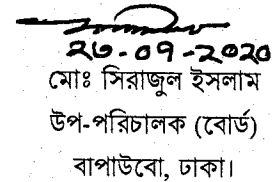 ২৩-০৭-২০২০
মোঃ সিরাজুল ইসলাম
উপ-পরিচালক (বোর্ড)
বাপাউবো, ঢাকা।